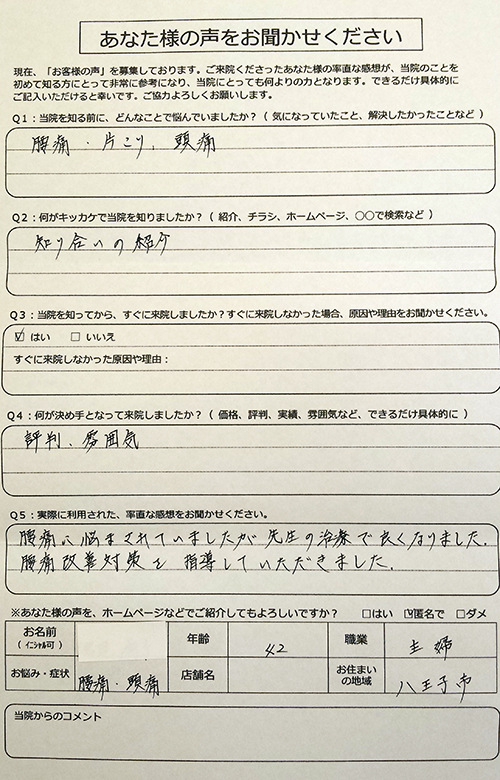 あなた様の声をお聞かせください
現在、「お客様の声」を募集しております。ご来院くださったあなた様の率直な感想が、当院のことを
初めて知る方にとって非常に参考になり、当院にとっても何よりの力となります。できるだけ具体的に
ご記入いただけると幸いです。ご協力よろしくお願いします。
Q1：当院を知る前に、どんなことで悩んでいましたか？（ 気になっていたこと、解決したかったことなど ）
腰痛・片こり、頭痛
Q2：何がキッカケで当院を知りましたか？（ 紹介、チラシ、ホームページ、〇〇で検索など ）
知り合いの紹介
Q3：当院を知ってから、すぐに来院しましたか？すぐに来院しなかった場合、原因や理由をお聞かせください。
☑ はい □ いいえ
すぐに来院しなかった原因や理由：
Q4：何が決め手となって来院しましたか？（ 価格、評判、実績、雰囲気など、できるだけ具体的に ）
評判、雰囲気
Q5：実際に利用された、率直な感想をお聞かせください。
腰痛に悩まされていましたが先生の治療で良くなりました.
腰痛改善対策を指導していただきました.
※あなた様の声を、ホームページなどでご紹介してもよろしいですか？ □はい ☑匿名で □ダメ
お名前
（ｲﾆｼｬﾙ可）
年齢
42
職業
主婦
お悩み・症状
腰痛・頭痛
店舗名
お住まい
の地域
八王子市
当院からのコメント